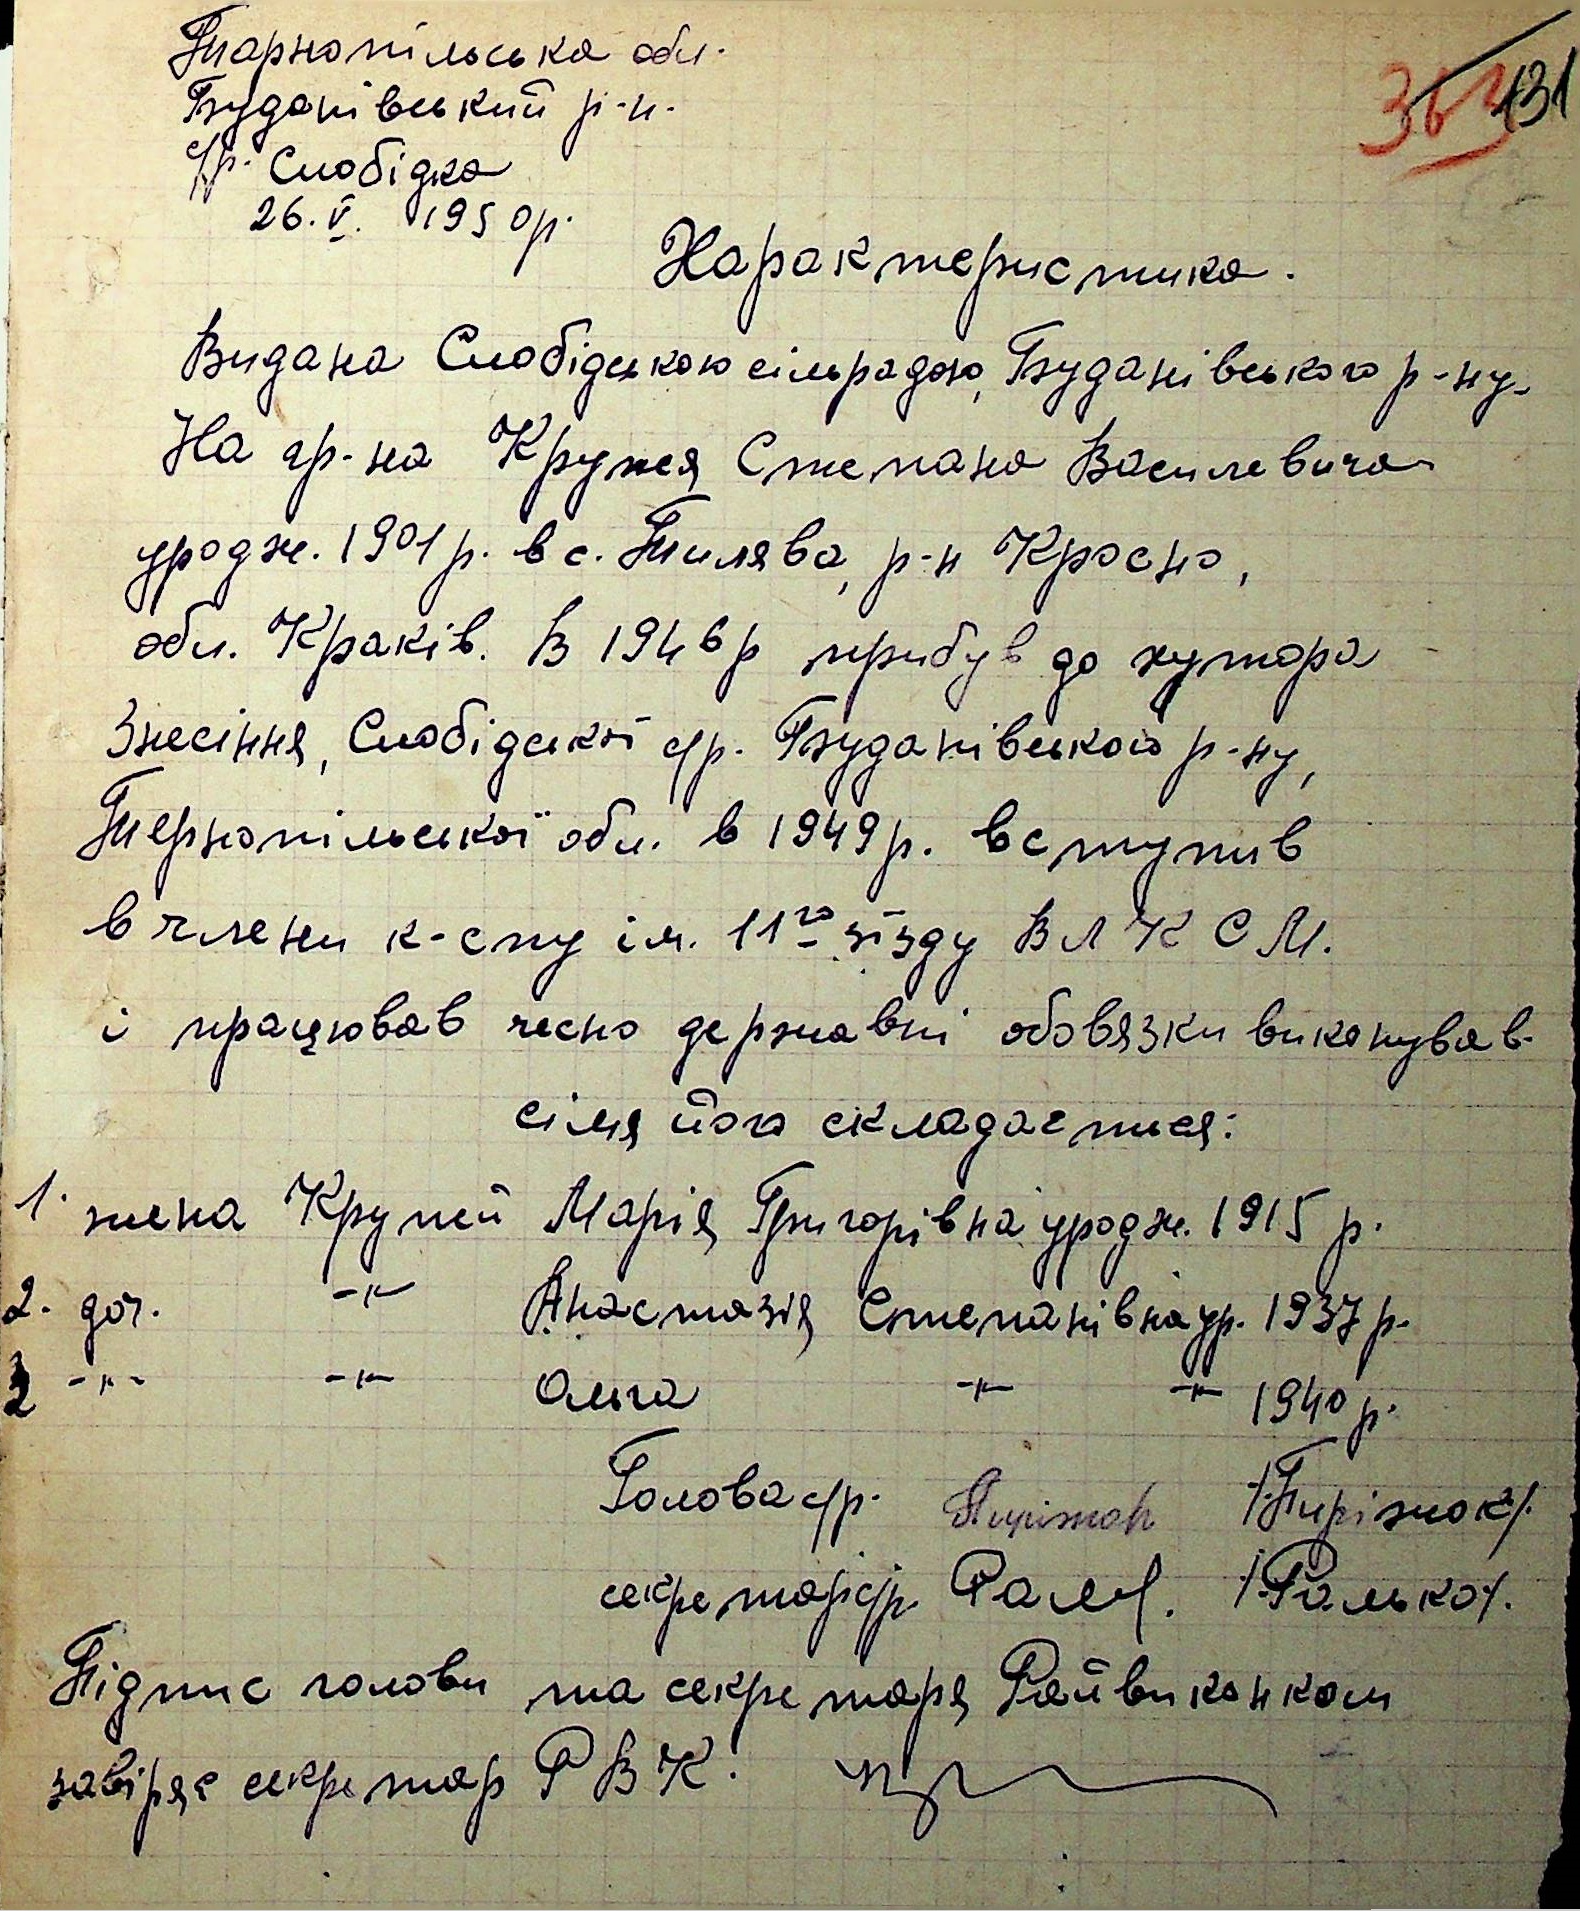 Тарнопільська обл.
131
Буданівський р-н.
с/р. Слобідка
26.V. 1950р.
Характеристика.
Видана Слобідською сільрадою, Буданівського р-ну.
На гр-на Крупея Степана Василевича
уродж. 1901р. в с. Тилява, р-н Кросно,
обл. Краків. В 1946р прибув до хутора
Знесіння, Слобідскої с/р. Буданівського р-ну,
Тернопільської обл. в 1949р. вступив
в члени к-спу ім. 11го зїзду ВЛКСМ.
і працював чесно державні обовязки виконував.
сімя його складається:
1. жена Крупей Марія Григорівна уродж. 1915 р.
2. доч. -"- Анастазія Степанівна ур. 1937р.
3 -"- -"- Ольга -"- -"- 1940р.
Голова с/р. Пиріжок /Пиріжок/.
секретар с/р. /Ралько/.
Підпис голови та секретаря Райвиконком
завіряє секретар РВК.